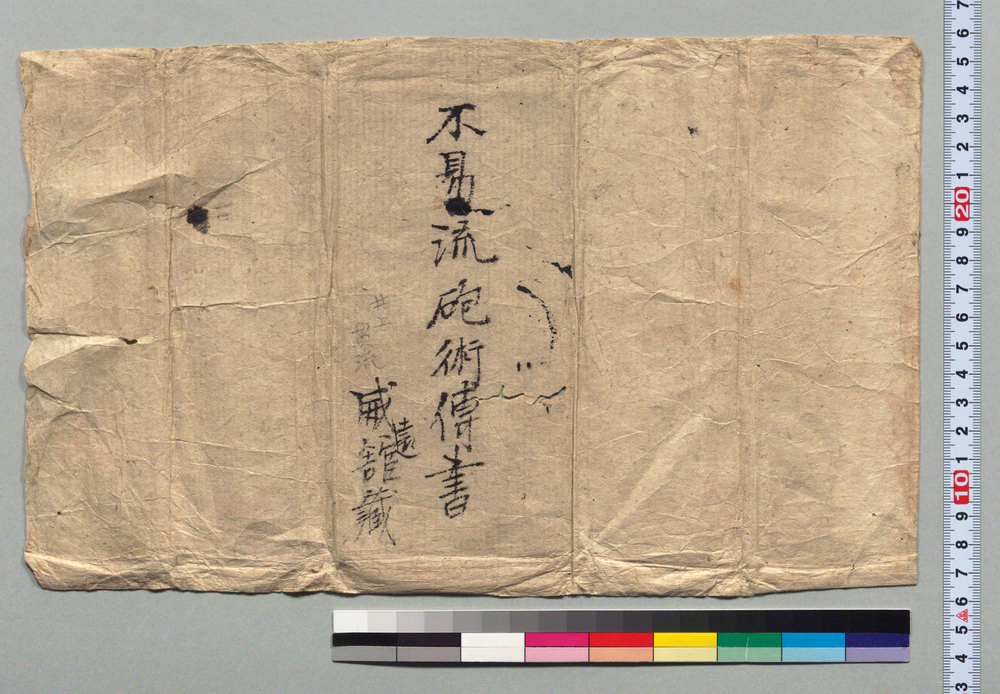 不易流砲術傳書
威遠舘蔵
7
6
5
4
3
2
1
20
9
8
7
6
5
4
3
2
1
10
9
8
7
6
5
4
3